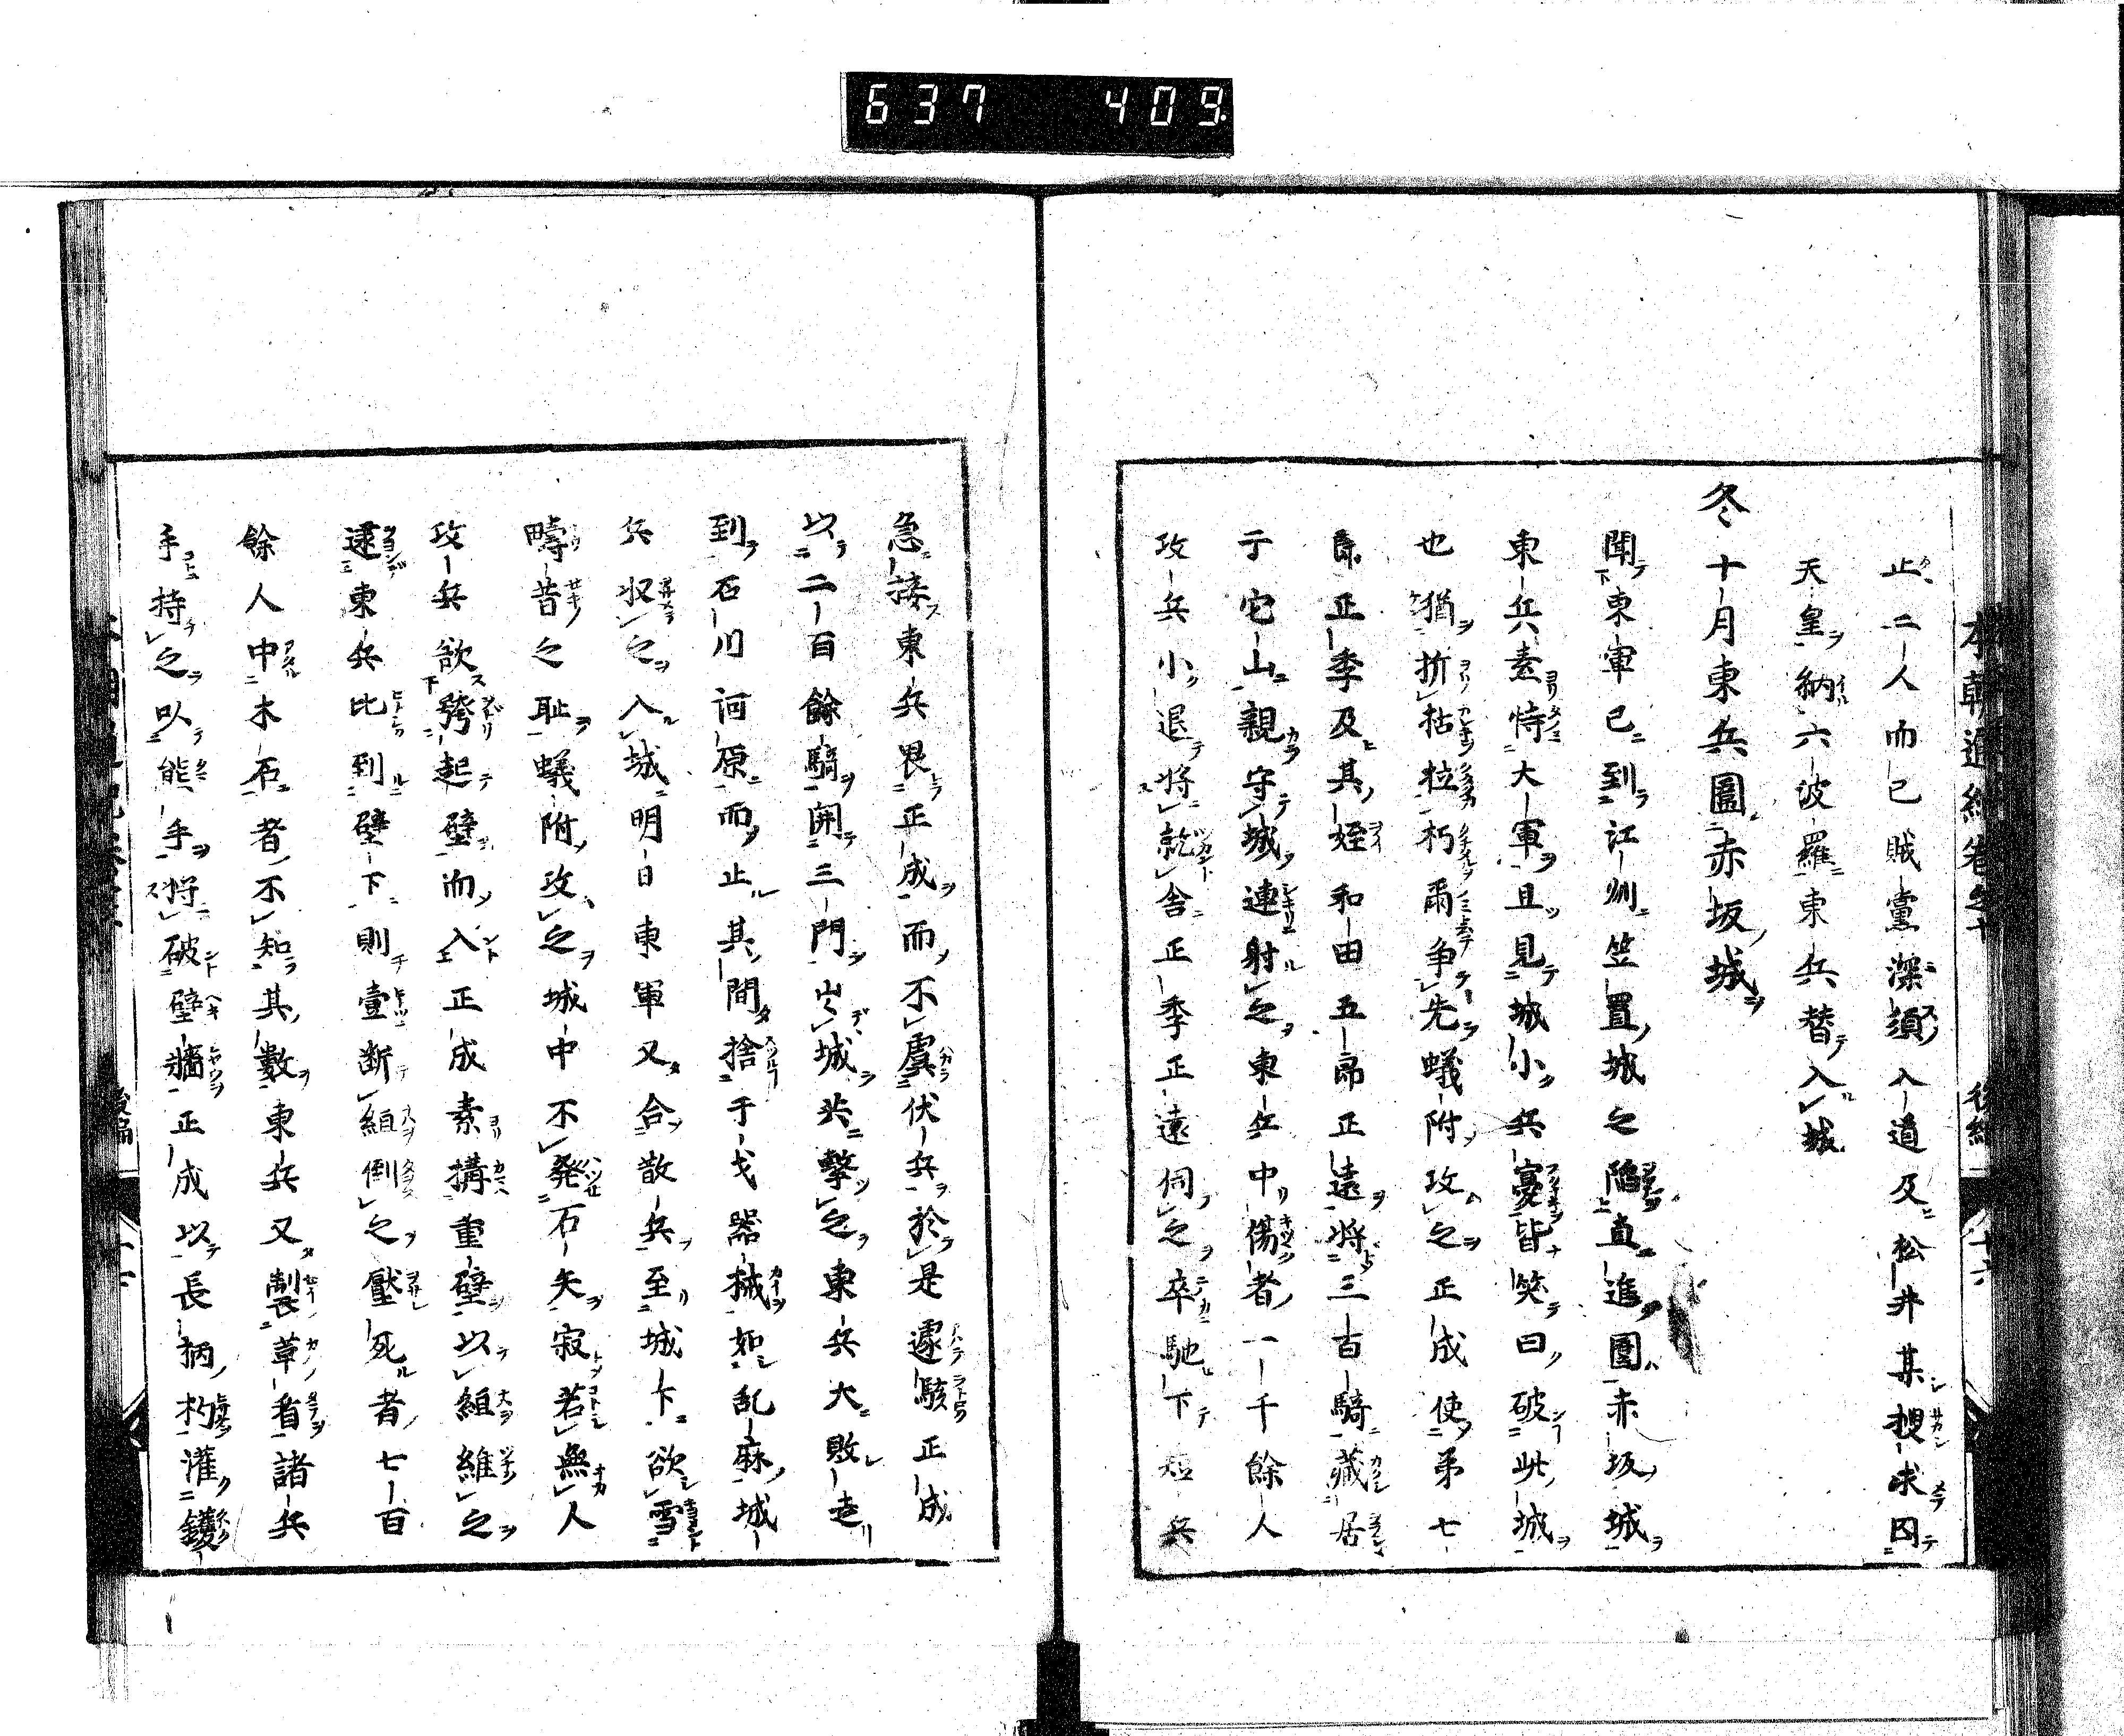 637 409
止二人而已賊黨深須入道及松井某捜求囚
天皇納六波羅東兵替入城
冬十月東兵圍赤坂城
聞東軍已到江州笠置城之陷直進圍赤坂城
東兵素恃大軍且見城小兵寡皆笑曰破此城
也猶折枯拉朽爾争先蟻附攻之正成使弟七
郎正季及其姪和田五郎正遠將三百騎藏居
于它山親守城連射之東兵中傷者一千餘人
攻兵小退將就舎正季正遠伺之卒馳下短兵
急接東兵畏正成而不虞伏兵於是遽駭正成
以二百餘騎開三門出城共撃之東兵大敗走
到石川河原而止其間捨于戈器械如乱麻城
兵収之入城明日東軍又合散兵至城下欲雪
疇昔之耻蟻附攻之城中不発石矢寂若無人
攻兵欲起壁而入正成素搆重壁以維之
逮東兵比到壁下則壹断倒之壓死者七百
餘人中木石者不知其數東兵又製革諸兵
手持之以熊手将破壁牆正成以長柄杓灌鑊